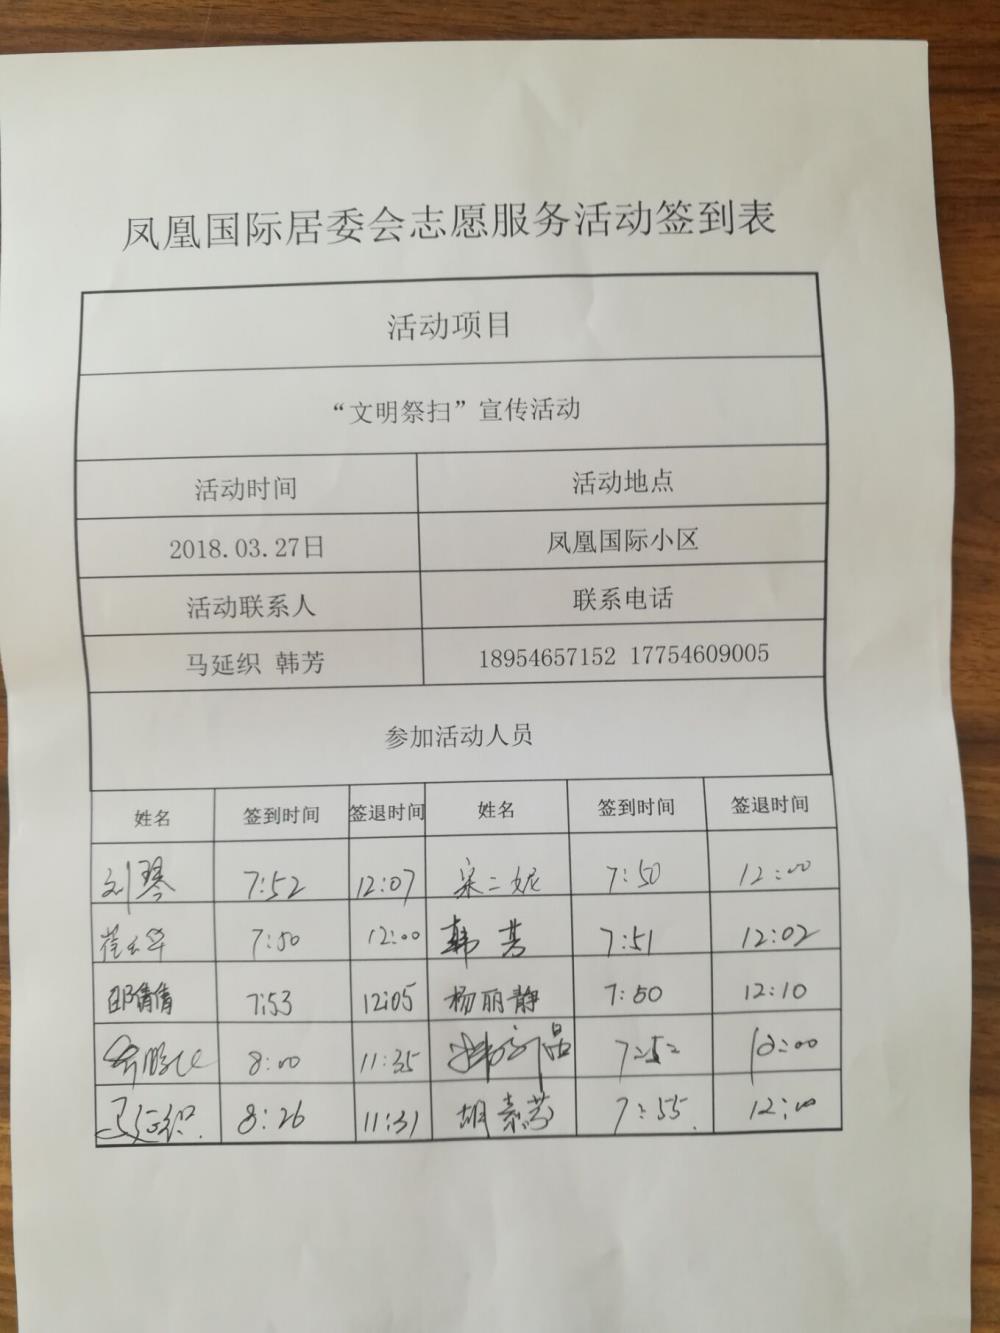 凤凰国际居委会志愿服务活动签到表
活动项目
“文明祭扫”宣传活动
活动时间 活动地点
2018.03.27日 凤凰国际小区
活动联系人 联系电话
马延织 韩芳 18954657152 17754609005
参加活动人员
姓名 签到时间 签退时间 姓名 签到时间 签退时间
刘琴 7:52 12:07 宋二妮 7:50 12:00
7:50 12:00 韩芳 7:51 12:02
邵倩倩 7:53 12:05 杨丽静 7:50 12:10
8:00 11:35 7:52
马延织 8:26 11:31 胡素芬 7:55 12:00